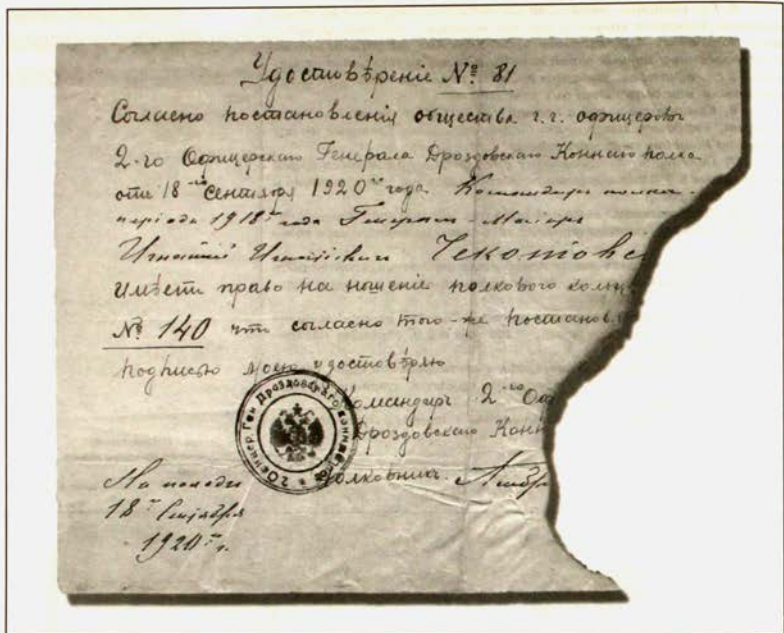 Удостовѣреніе № 81
Согласно постановленія общества г.г. офицеровъ
2-го Офицерскаго Генерала Дроздовскаго Коннаго полка
отъ 18-го Сентября 1920 года Командиръ полка
періода 1918 года Генералъ-Маіоръ
Игнатій Игнатьевичъ Чекотовс
имѣетъ право на ношеніе полкового кольц
№ 140 что согласно того-же постанов
подписью моею удостовѣряю
Командиръ 2-го Оф
Дроздовскаго Конн
Полковникъ
На походѣ
18 Сентября
1920 г.
2 Офицер. Ген. Дроздовскаго коннаго полка